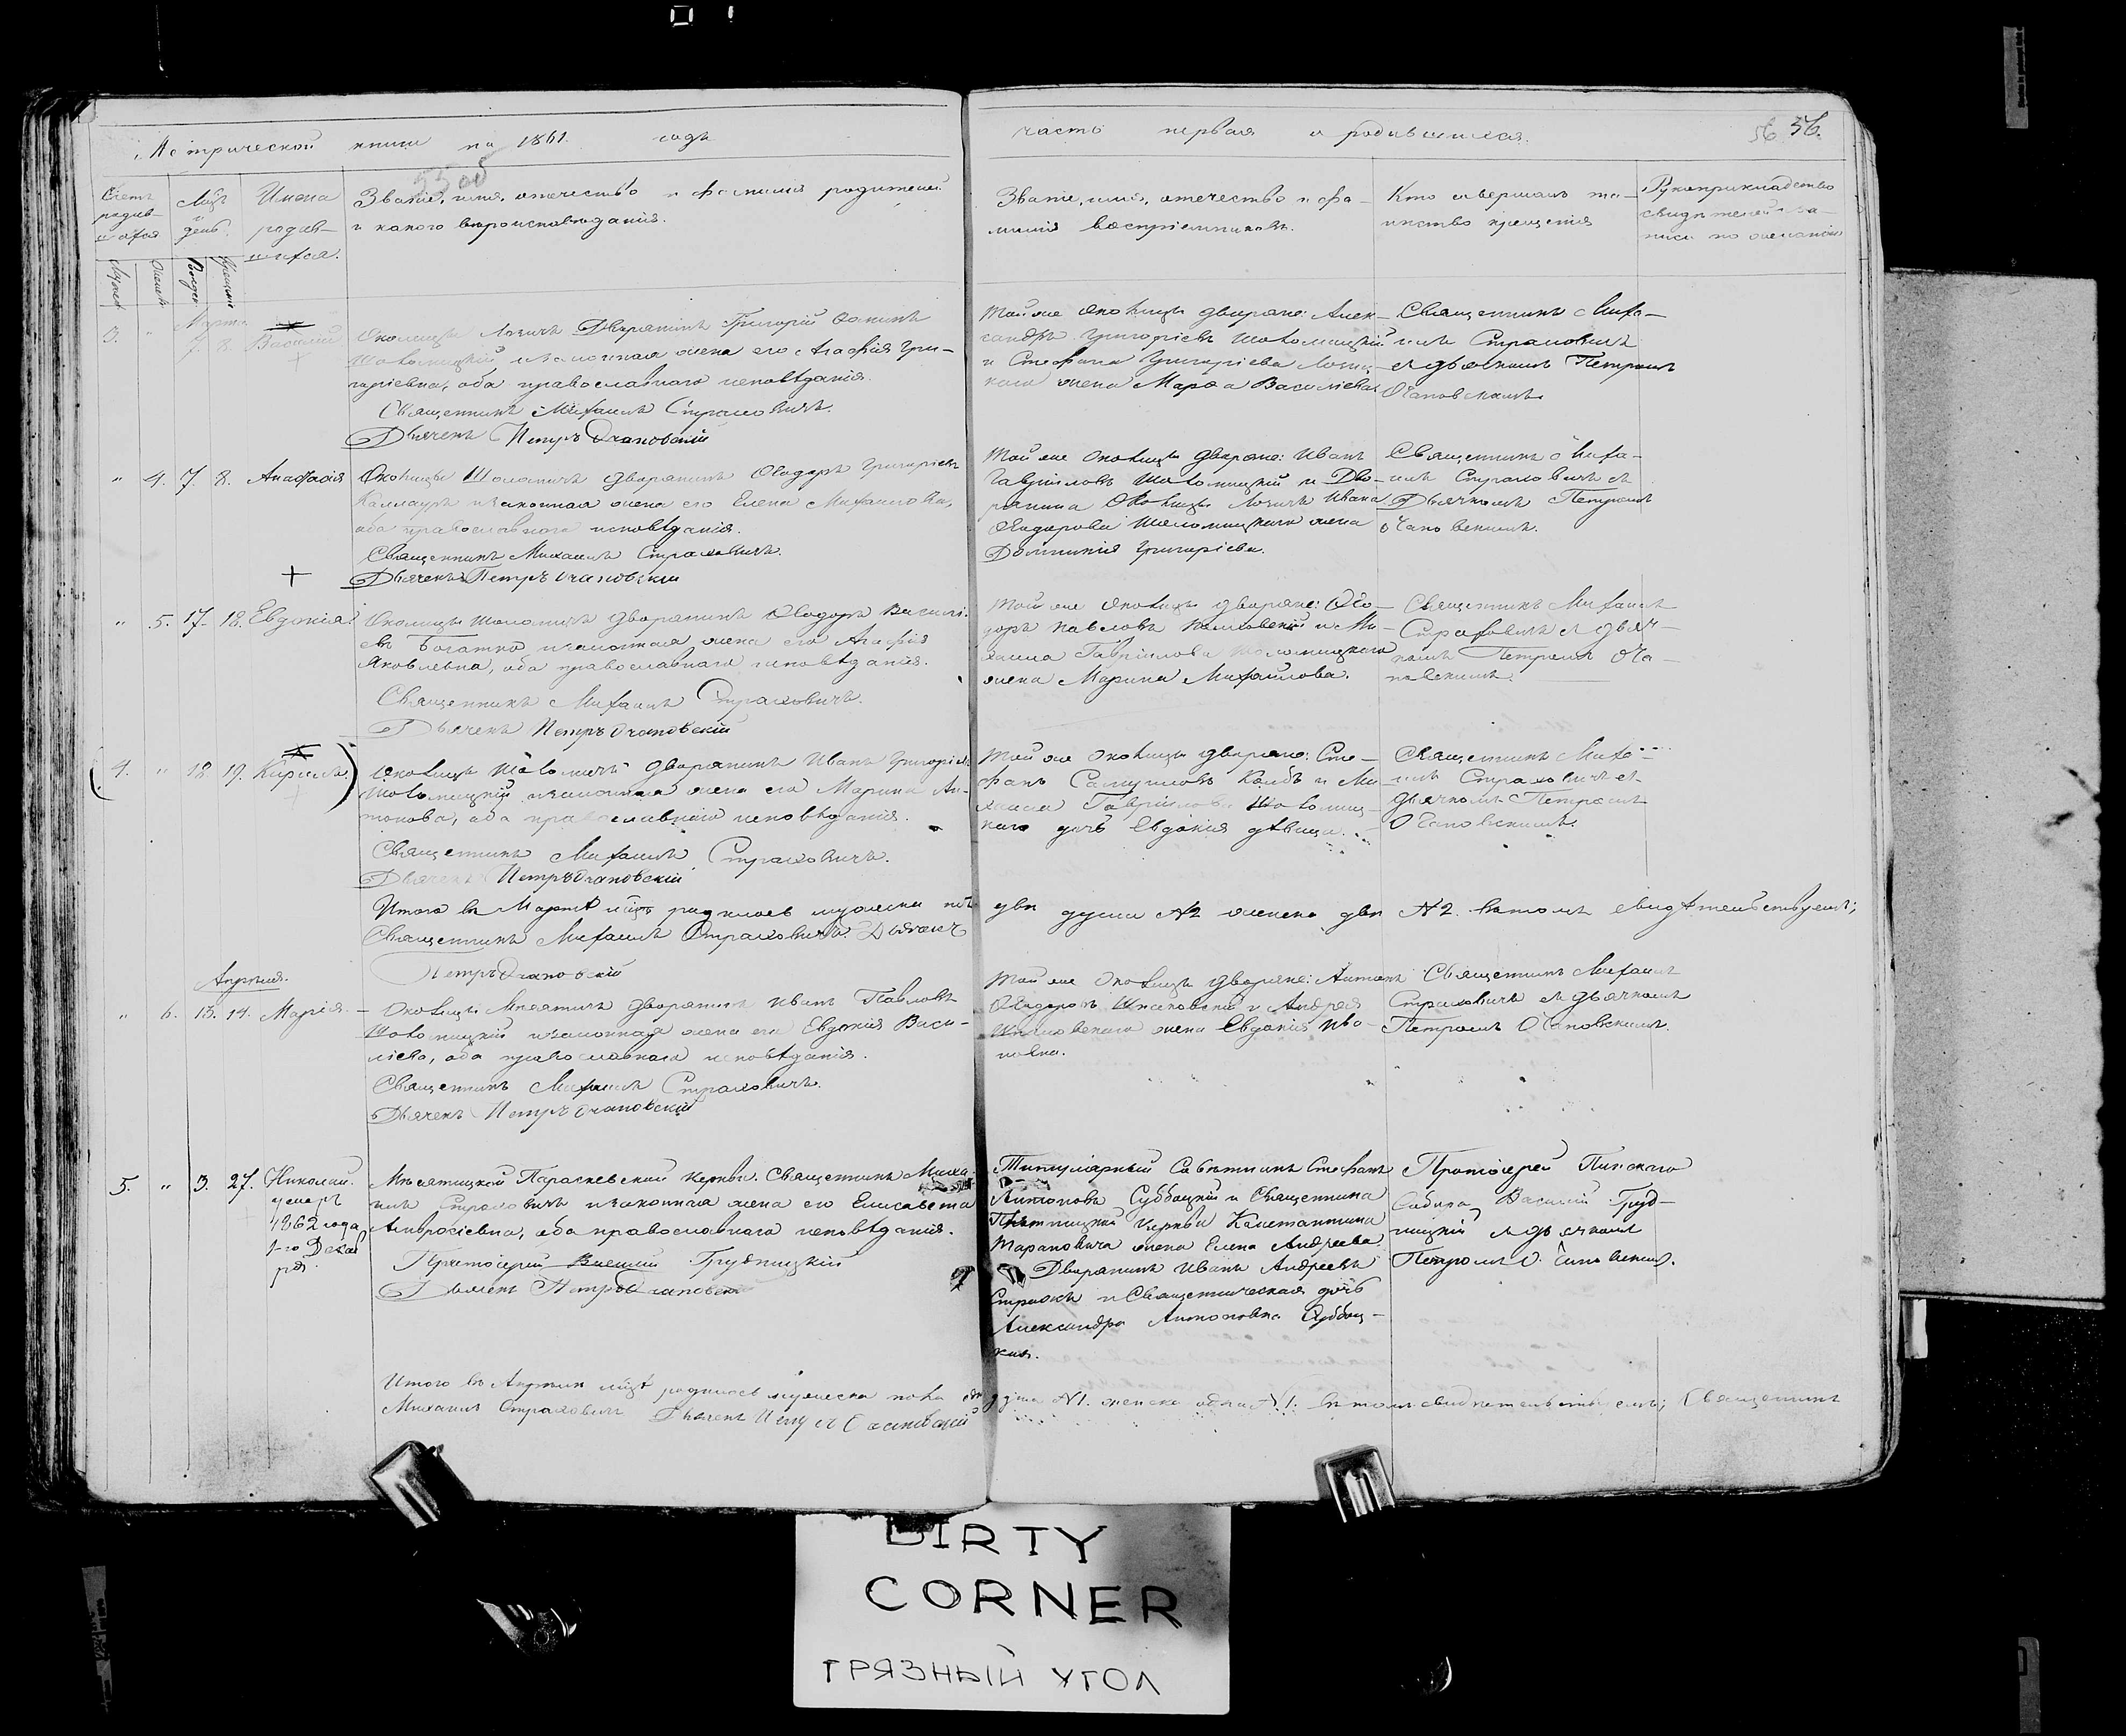 Метрической книги на 1861. годъ
часть первая о родившихся.
56 56.
Счетъ родив-
шихся
Мцъ
и
день.
Имена
родив-
шихся.
Званіе, имя, отечество и фамилія родителей
и какого вѣроисповѣданія.
Званіе, имя, отечество и фа-
милія воспріемниковъ.
Кто совершалъ та-
инство крещенія
Рукоприкладство
свидѣтелей за-
писи по желанію
3. " Марта 7. 8. Василій
Околицы Дворянинъ Григорій
Шоломицкій и законная жена его Агафія Гри-
горіевна, оба православнаго исповѣданія.
Священникъ Михаилъ Страховичъ.
Дьячекъ Петръ Очаповскій
Той же околицы дворяне: Алек-
сандръ Григоріевъ Шоломицкій
и Стефана Григоріева
жена Марѳа Василіева.
Священникъ Миха-
илъ Страховичъ
съ дьячкомъ Петромъ
Очаповскимъ.
" 4. 7. 8. Анастасія
Околицы Шоломичъ дворянинъ Ѳеодоръ Григоріевъ
Каллауръ и законная жена его Елена Михайлова,
оба православнаго исповѣданія.
Священникъ Михаилъ Страховичъ.
Дьячекъ Петръ Очаповскій
Той же околицы дворяне: Иванъ
Гавріиловъ Шоломицкій и Дво-
рянина Околицы Ивана
Ѳеодорова Шоломицкаго жена
Домникія Григоріева.
Священникъ Миха-
илъ Страховичъ съ
Дьячкомъ Петромъ
Очаповскимъ.
" 5. 17. 18. Евдокія
Околицы Шоломичъ дворянинъ Ѳеодоръ Василі-
евъ Богатко и законная жена его Агафія
Яковлевна, оба православнаго исповѣданія.
Священникъ Михаилъ Страховичъ.
Дьячекъ Петръ Очаповскій
Той же околицы дворяне: Ѳео-
доръ Павловъ и Ми-
хаила Гавріилова Шоломицкаго
жена Марина Михайлова.
Священникъ Михаилъ
Страховичъ съ дьяч-
комъ Петромъ Оча-
повскимъ.
4. " 18 19. Кириллъ
Околицы Шоломичъ дворянинъ Иванъ Григоріевъ
Шоломицкій и законная жена его Марина Ан-
тонова, оба православнаго исповѣданія.
Священникъ Михаилъ Страховичъ.
Дьячекъ Петръ Очаповскій
Той же околицы дворяне: Сте-
фанъ Самуиловъ Колбъ и Ми-
хаила Гавріилова Шоломиц-
каго дочь Евдокія дѣвица.
Священникъ Миха-
илъ Страховичъ съ
дьячкомъ Петромъ
Очаповскимъ.
Итого въ Мартѣ мцѣ родилось мужеска пола двѣ души №2 женска двѣ №2. въ томъ свидѣтельствуемъ;
Священникъ Михаилъ Страховичъ. Дьячекъ
Петръ Очаповскій
Апрѣля.
" 6. 13. 14. Марія.
Околицы Мнеятичъ дворянинъ Иванъ Павловъ
Шоломицкій и законная жена его Евдокія Васи-
ліева, оба православнаго исповѣданія.
Священникъ Михаилъ Страховичъ.
Дьячекъ Петръ Очаповскій
Той же Околицы дворяне: Антонъ
Ѳеодоровъ и Андрея
жена Евдокія Ива-
новна.
Священникъ Михаилъ
Страховичъ съ дьячкомъ
Петромъ Очаповскимъ.
5. " 3. 27. Николай.
умеръ
1862 года
1-го Декаб
ря.
Параскевской церкви Священникъ Миха-
илъ Страховичъ и законная жена его Елисавета
Амвросіевна, оба православнаго исповѣданія.
Протоіерей Василій Грудницкій
Дьячекъ Петръ Очаповскій
Титулярный Совѣтникъ Стефанъ
Антоновъ Суббоцкій и Священника
церкви Константина
Тарановича жена Елена Андреева
Дворянинъ Иванъ Андреевъ
и Священническая дочь
Александра Антоновна Суббоц-
кая.
Протоіерей Пинскаго
Собора Василій Груд-
ницкій съ дьячкомъ
Петромъ Очаповским.
Итого въ Апрѣлѣ мцѣ родилось мужеска пола одна душа №1. женска одна №1. въ томъ свидѣтельствуемъ; Священникъ
Михаилъ Страховичъ Дьячекъ Петръ Очаповскій
DIRTY
CORNER
ГРЯЗНЫЙ УГОЛ